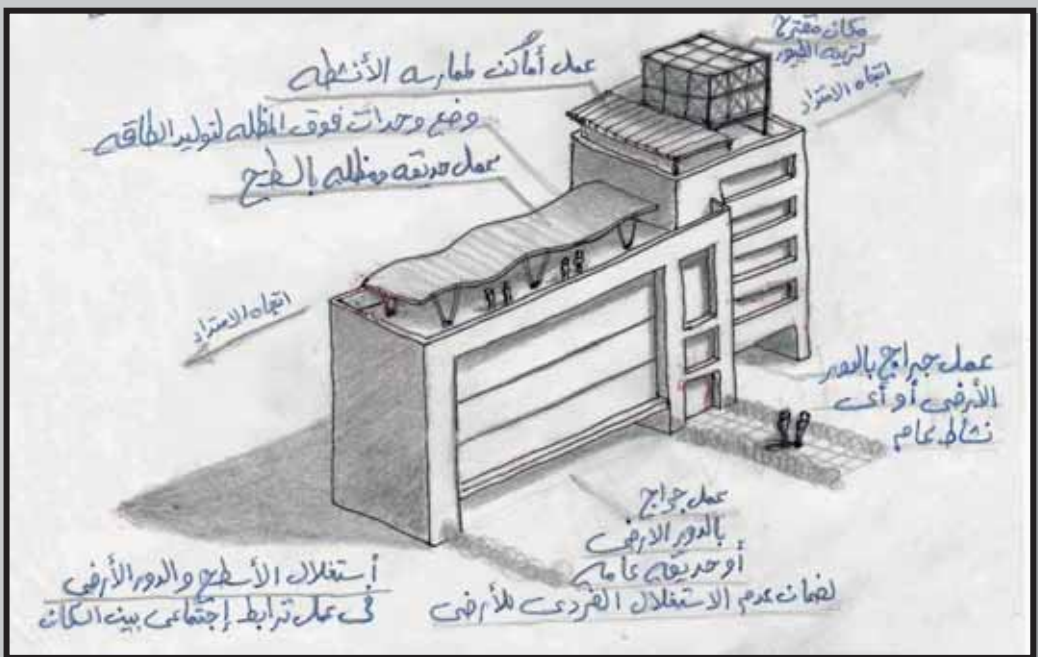 مكان مقترح
لتربية الطيور
اتجاه الامتداد
عمل أماكن لممارسه الأنشطه
وضع وحدات فوق المظله لتوليد الطاقه
عمل حديقه ومظله بالسطح
اتجاه الامتداد
عمل جراج بالدور
الأرضى أو أى
نشاط عام
عمل جراج
بالدور الارضى
أو حديقه عامه
لضمان عدم الاستغلال الفردى للأرضى
أستغلال الأسطح والدور الأرضى
فى عمل ترابط إجتماعى بين السكان